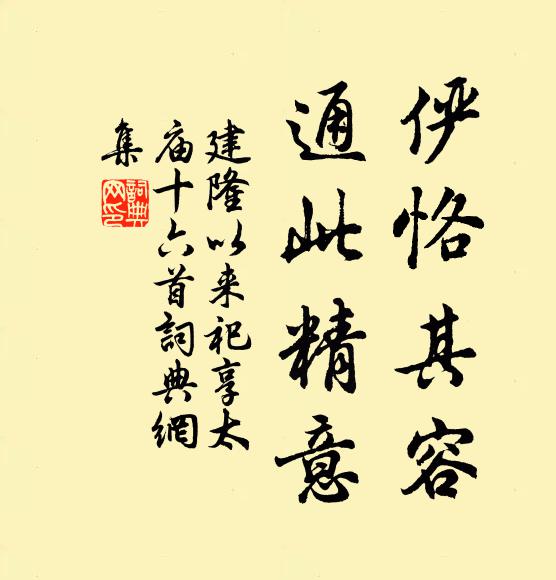 俨恪其容
通此精意
建隆以来祀享太
庙十六首詞典網
集
詞典网印